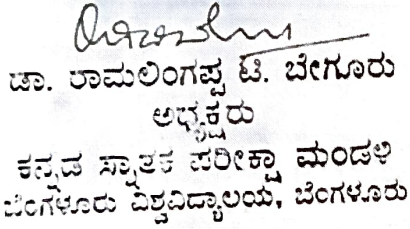 ಡಾ. ರಾಮಲಿಂಗಪ್ಪ ಟಿ. ಬೇಗೂರು
ಅಧ್ಯಕ್ಷರು
ಕನ್ನಡ ಸ್ನಾತಕ ಪರೀಕ್ಷಾ ಮಂಡಳಿ
ಬೆಂಗಳೂರು ವಿಶ್ವವಿದ್ಯಾಲಯ, ಬೆಂಗಳೂರು